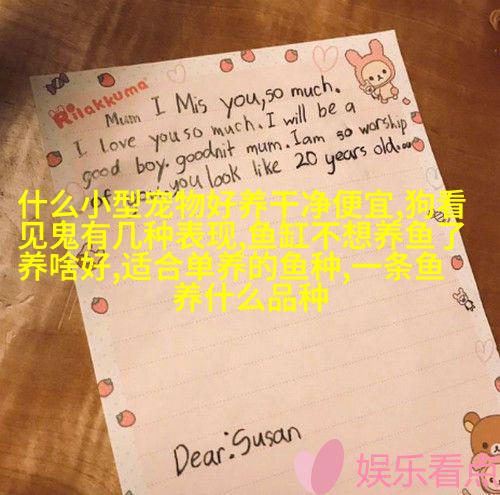 Rilakkuma
Mum I Mis you, so much.
I love you so much. I will be a
good boy. goodnit mum. I am so worship
you look like 20 years old....
什么小型宠物好养干净便宜,狗看
见鬼有几种表现,鱼缸不想养鱼了
养啥好,适合单养的鱼种,一条鱼
养什么品种
Dear: Susan
娱乐看点